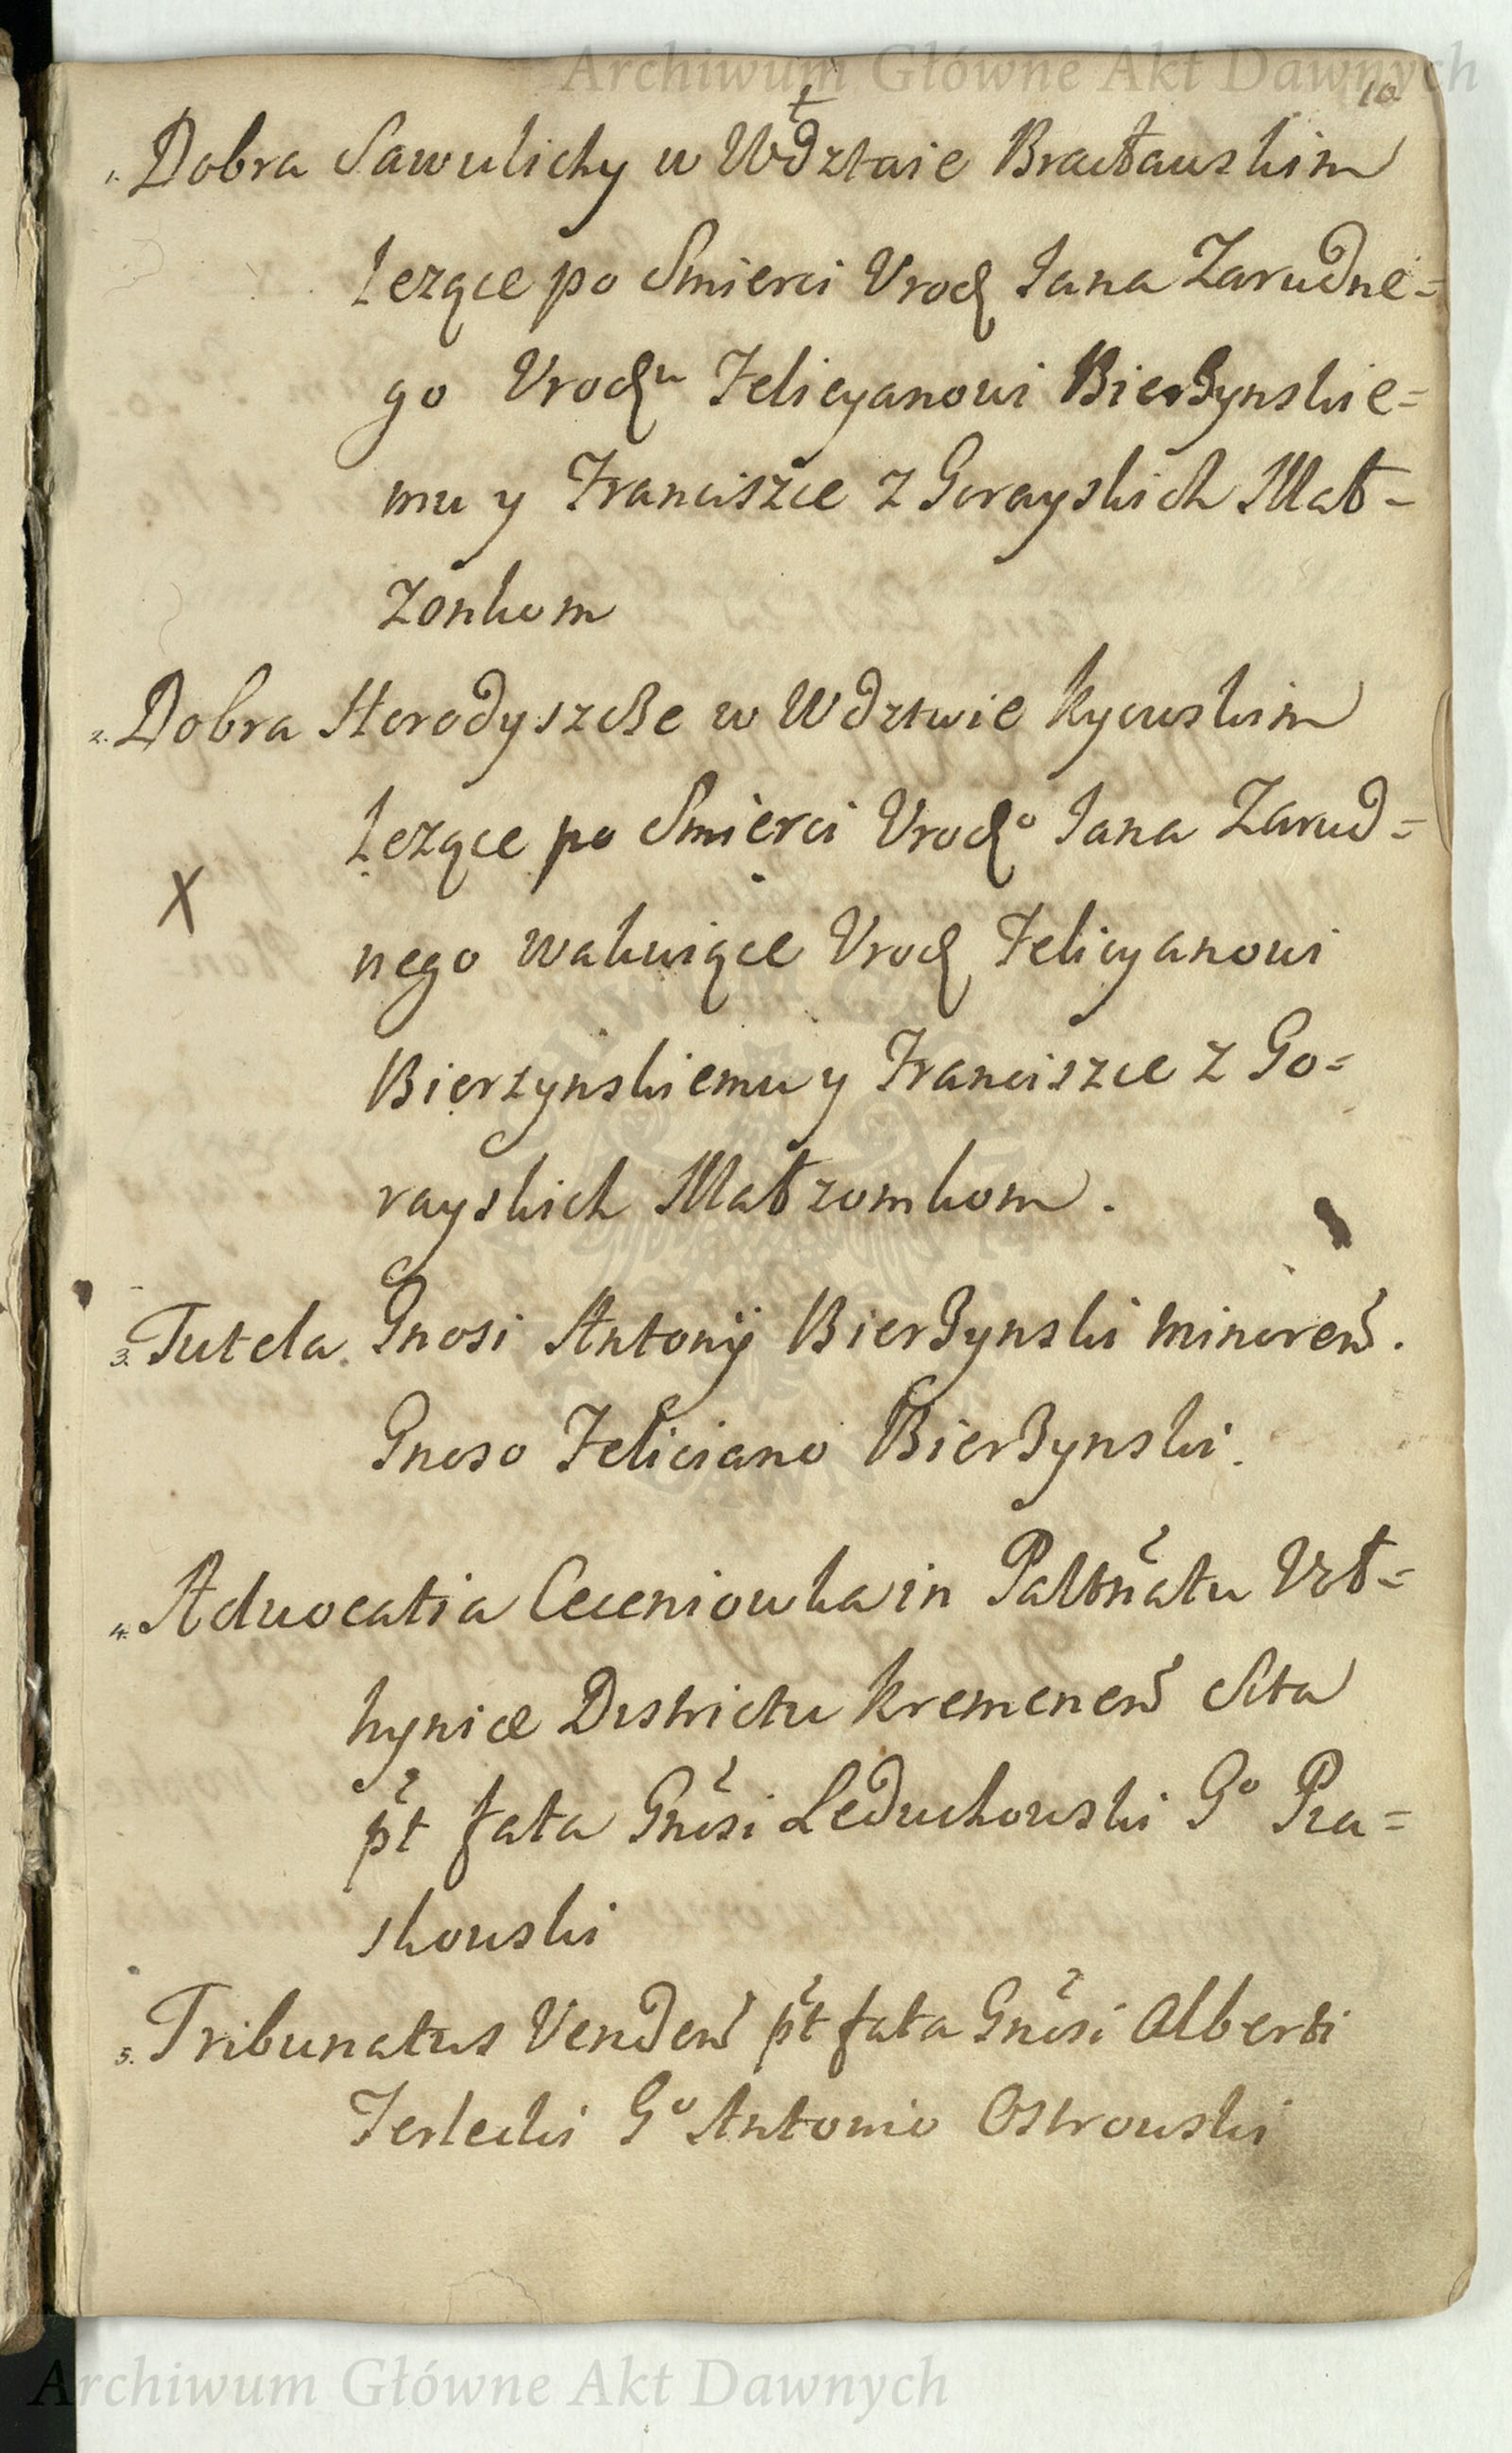 Archiwum Główne Akt Dawnych
10
1. Dobra Sawulichy w Wdztwie Bracławskim
lezące po Smierci Urodz Jana Zarudne=
go Urodzu Felicyanowi Bierzynskie=
mu y Franciszce z Gorayskich Mał-
zonkom
2. Dobra Horodyszcze w Wdztwie Kyowskim
lezące po Smierci Urodzo Jana Zarud=
X
nego wakuiące Urodz Felicyanowi
Bierzynskiemu y Franciszce z Go=
rayskich Małzomkom.
3. Tutela Gnosi Antonij Bierzynski minoren.
Gnoso Feliciano Bierzynski.
4. Advocatia Ceceniowka in Paltnatu Vol=
hyniæ Districtu Kremenen Sita
pt fata Gnosi Leduchowski Go Pra=
skowski
5. Tribunatus Venden pt fata Gnosi Alberti
Terlecki Go Antonio Ostrowski
Archiwum Główne Akt Dawnych